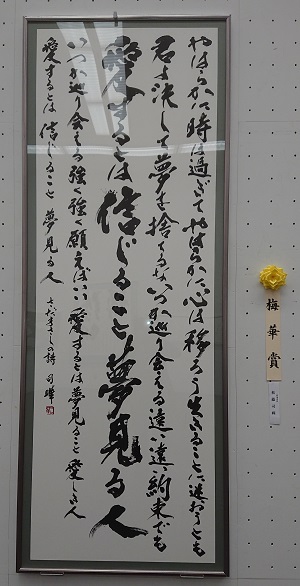 やはらかに時は過ぎてやはらかに心は移ろう生きることに迷おうとも
君よ決して夢を捨てるないつか巡り会える遠い遠い約束でも
愛することは信じること夢見る人
いつか巡り会える強く強く願えばいい愛するとは夢見ること愛しき人
愛するとは信じること夢見る人
さだまさしの詩
梅華賞